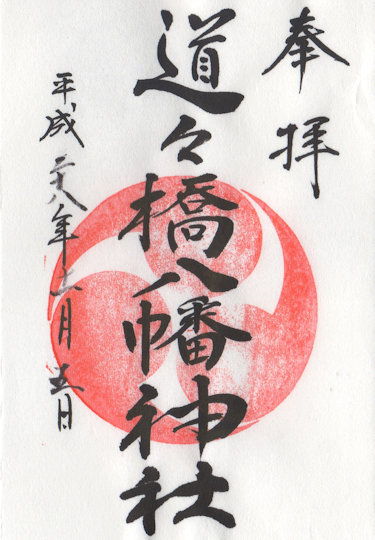 奉拝
道々橋八幡神社
平成二十八年十一月五日